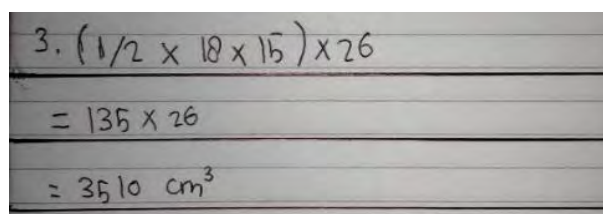 3. (1/2 x 18 x 15) x 26
= 135 x 26
= 3510 cm³